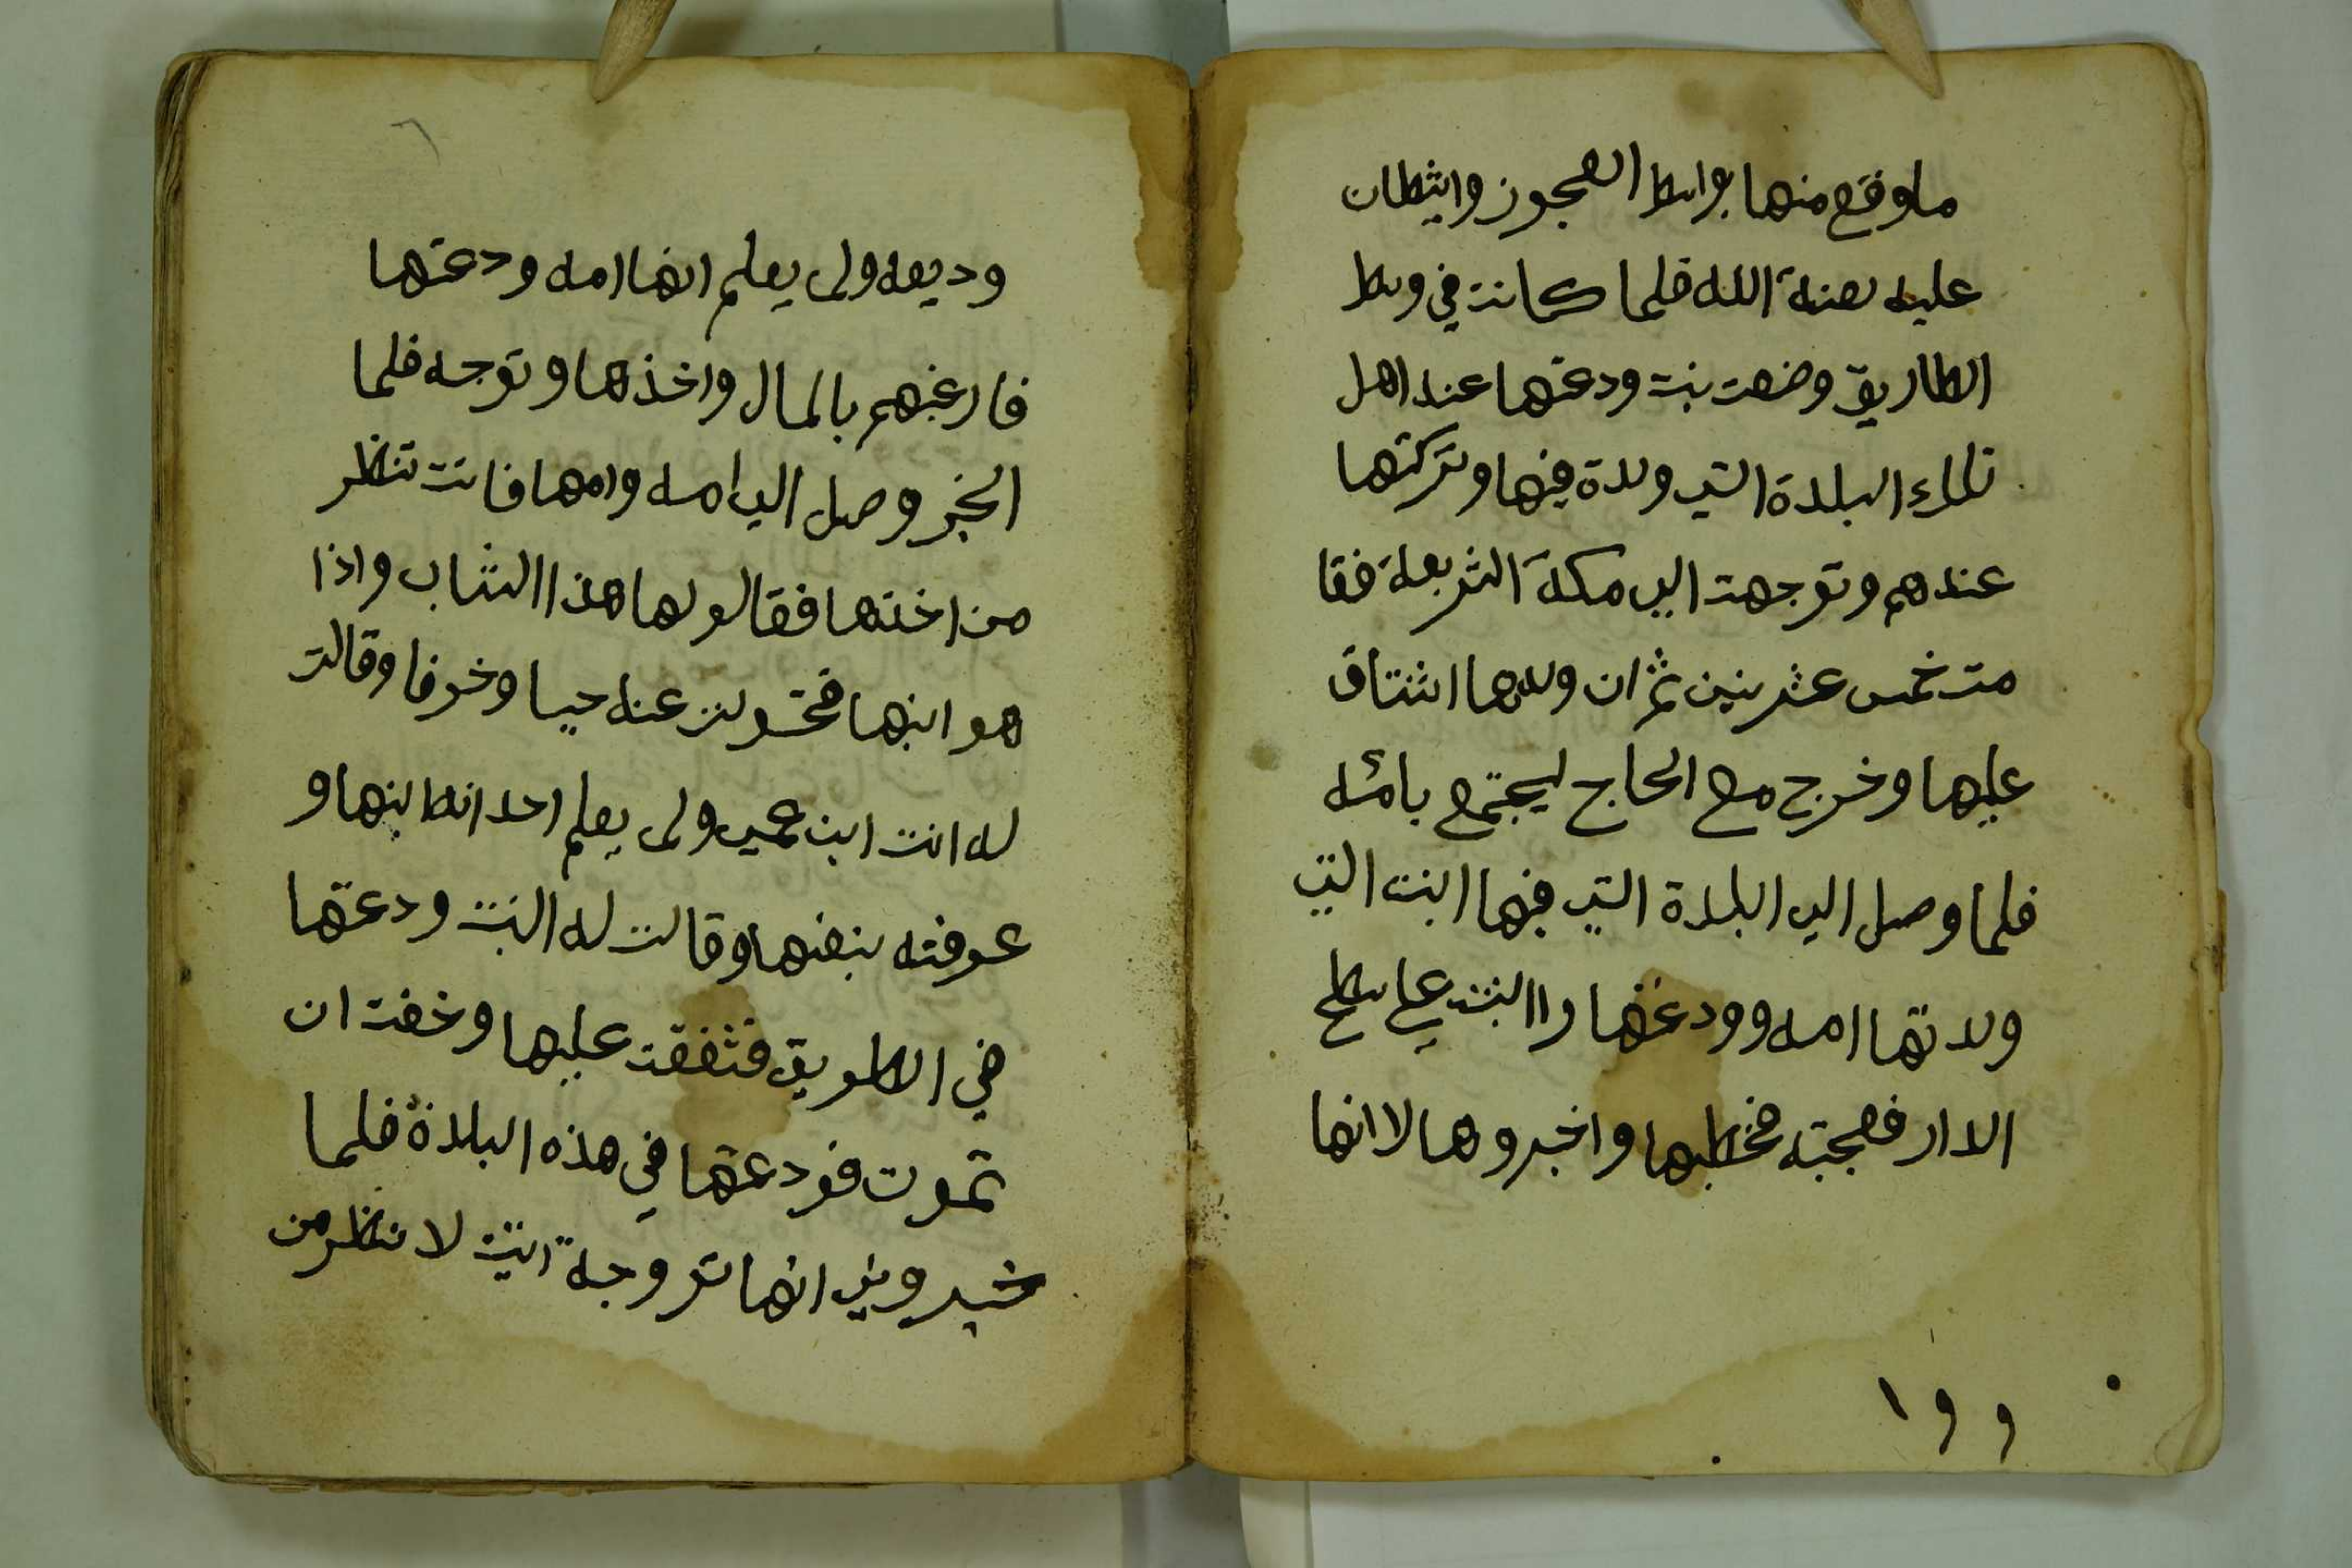 ما وقع منها بواسط العجوز والشطان
عليه لعنة الله فلما كانت في وسط
الطاريق وضعت بنت ودعتها عند اهل
تلك البلدة التي ولدة فيها وتركتها
عندهم وتوجهت الي مكة الشريعة فقا
مت خمس عشر سنين ثم ان ولدها اشتاق
عليها وخرج مع الحاج ليجتمع بامه
فلما وصل الي البلدة التي فيها البنت التي
ولدتها امه وودعتها راا البنت علي سطح
الدار فعجبته فخطبها واخبروها لا انها
وديعه ولم يعلم انها امه ودعتها
فارغبهم بالمال واخذها وتوجه فلما
الخبر وصل الي امه وامها فانت تنظر
من اخذها فقالو لها هذا الشاب واذا
هو ابنها فتحولت عنه حيا وخوفا وقالت
له انت ابن عمي ولم يعلم احد انه ابنها و
عرفته بنفسها وقالت له البنت ودعتها
في الطريق فشفقت عليها وخفت ان
تموت فودعتها في هذه البلدة فلما
خبروني انها تزوجة اتيت لا نظر من